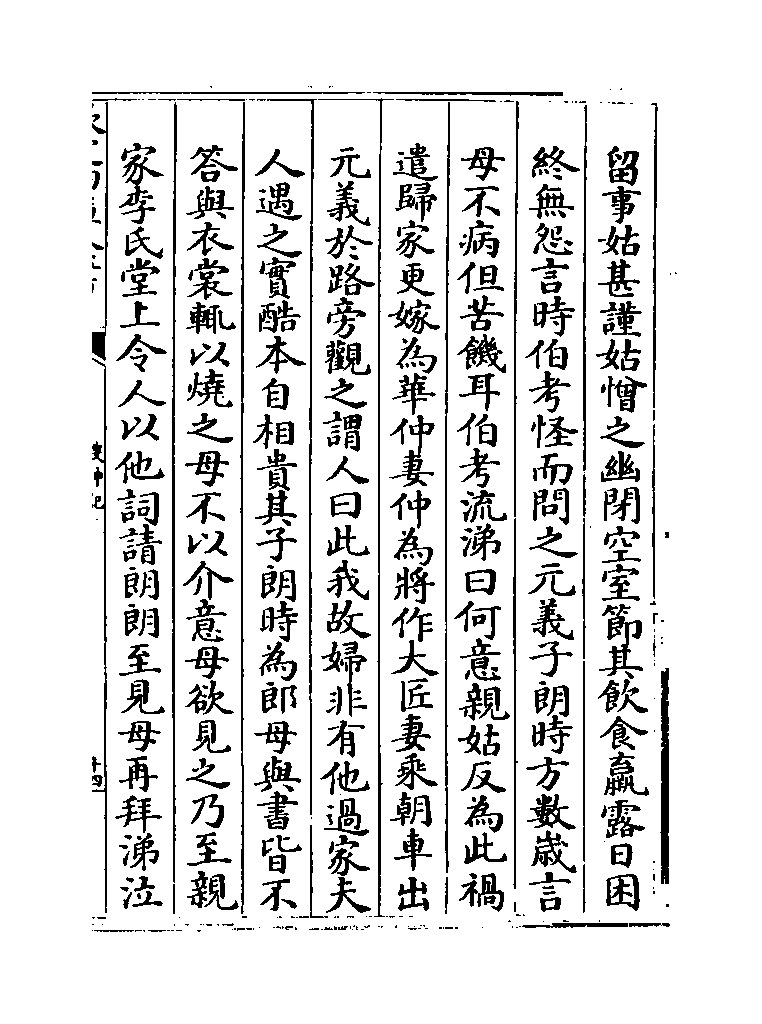 留事姑甚謹姑憎之幽閉空室節其飲食羸露日困
終無怨言時伯考怪而問之元義子朗時方數歲言
母不病但苦饑耳伯考流涕曰何意親姑反為此禍
遣歸家更嫁為華仲妻仲為將作大匠妻乘朝車出
元義於路旁觀之謂人曰此我故婦非有他過家夫
人遇之實酷本自相貴其子朗時為郎母與書皆不
答與衣裳輒以燒之母不以介意母欲見之乃至親
家李氏堂上令人以他詞請朗朗至見母再拜涕泣
搜神記
十四